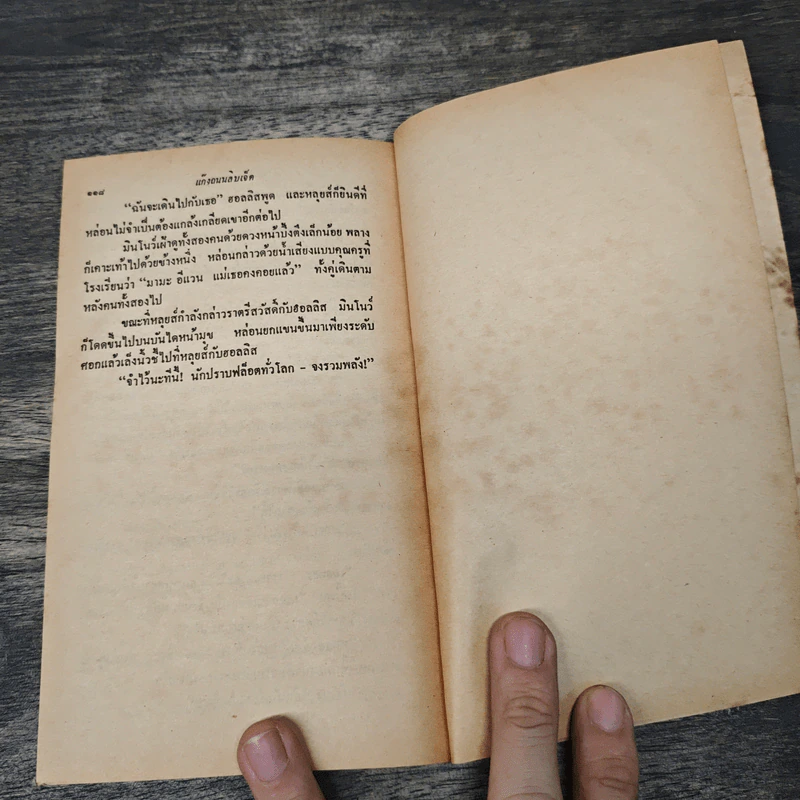 ๑๑๘
แก๊งถนนลิบเจ็ค
“ฉันจะเดินไปกับเธอ” ฮอลลิสพูด และหลุยส์ก็ยินดีที่
หล่อนไม่จำเป็นต้องแกล้งเกลียดเขาอีกต่อไป
มินโนว์เฝ้าดูทั้งสองคนด้วยดวงหน้าบึ้งตึงเล็กน้อย พลาง
ก็เคาะเท้าไปด้วยข้างหนึ่ง หล่อนกล่าวด้วยน้ำเสียงแบบคุณครูที่
โรงเรียนว่า “มามะ อีแวน แม่เธอคงคอยแล้ว” ทั้งคู่เดินตาม
หลังคนทั้งสองไป
ขณะที่หลุยส์กำลังกล่าวราตรีสวัสดิ์กับฮอลลิส มินโนว์
ก็โดดขึ้นไปบนบันไดหน้ามุข หล่อนยกแขนขึ้นมาเพียงระดับ
ศอกแล้วเล็งนิ้วชี้ไปที่หลุยส์กับฮอลลิส
“จำไว้นะทีนี้! นักปราบฟล็อตทั่วโลก – จงรวมพลัง!”